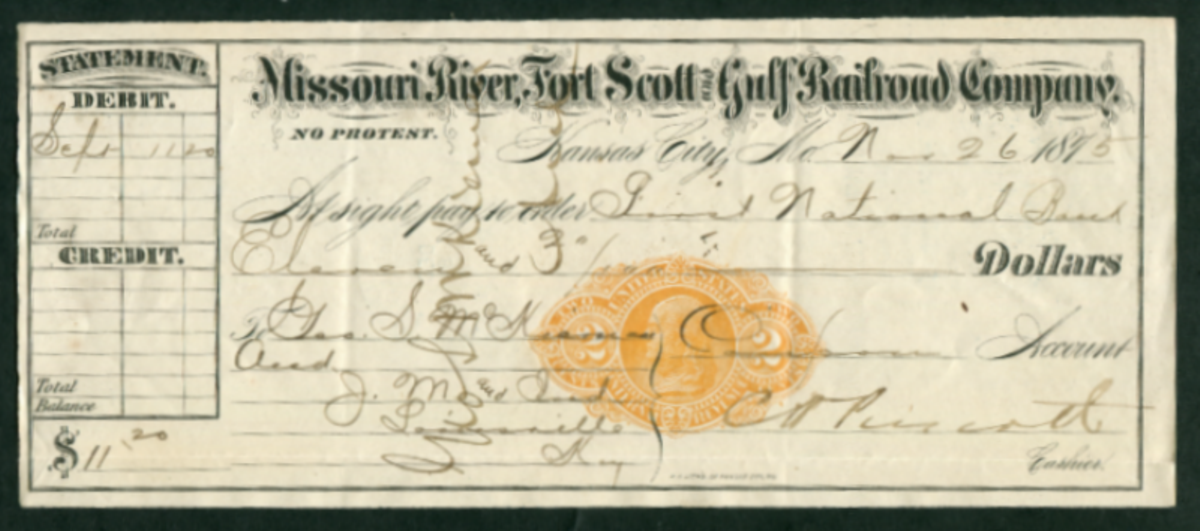 STATEMENT.
DEBIT.
Sept 11 20
Total
CREDIT.
Total
Balance
$ 11.20
Missouri River, Fort Scott and Gulf Railroad Company.
NO PROTEST.
Kansas City, Mo. Nov 26 1875
At sight, pay to order First National Bank
Eleven and Dollars
To Geo. S. Account
Aud.
J. M and Ind
Louisville
Ky
Cashier.
UNITED STATES
2 2